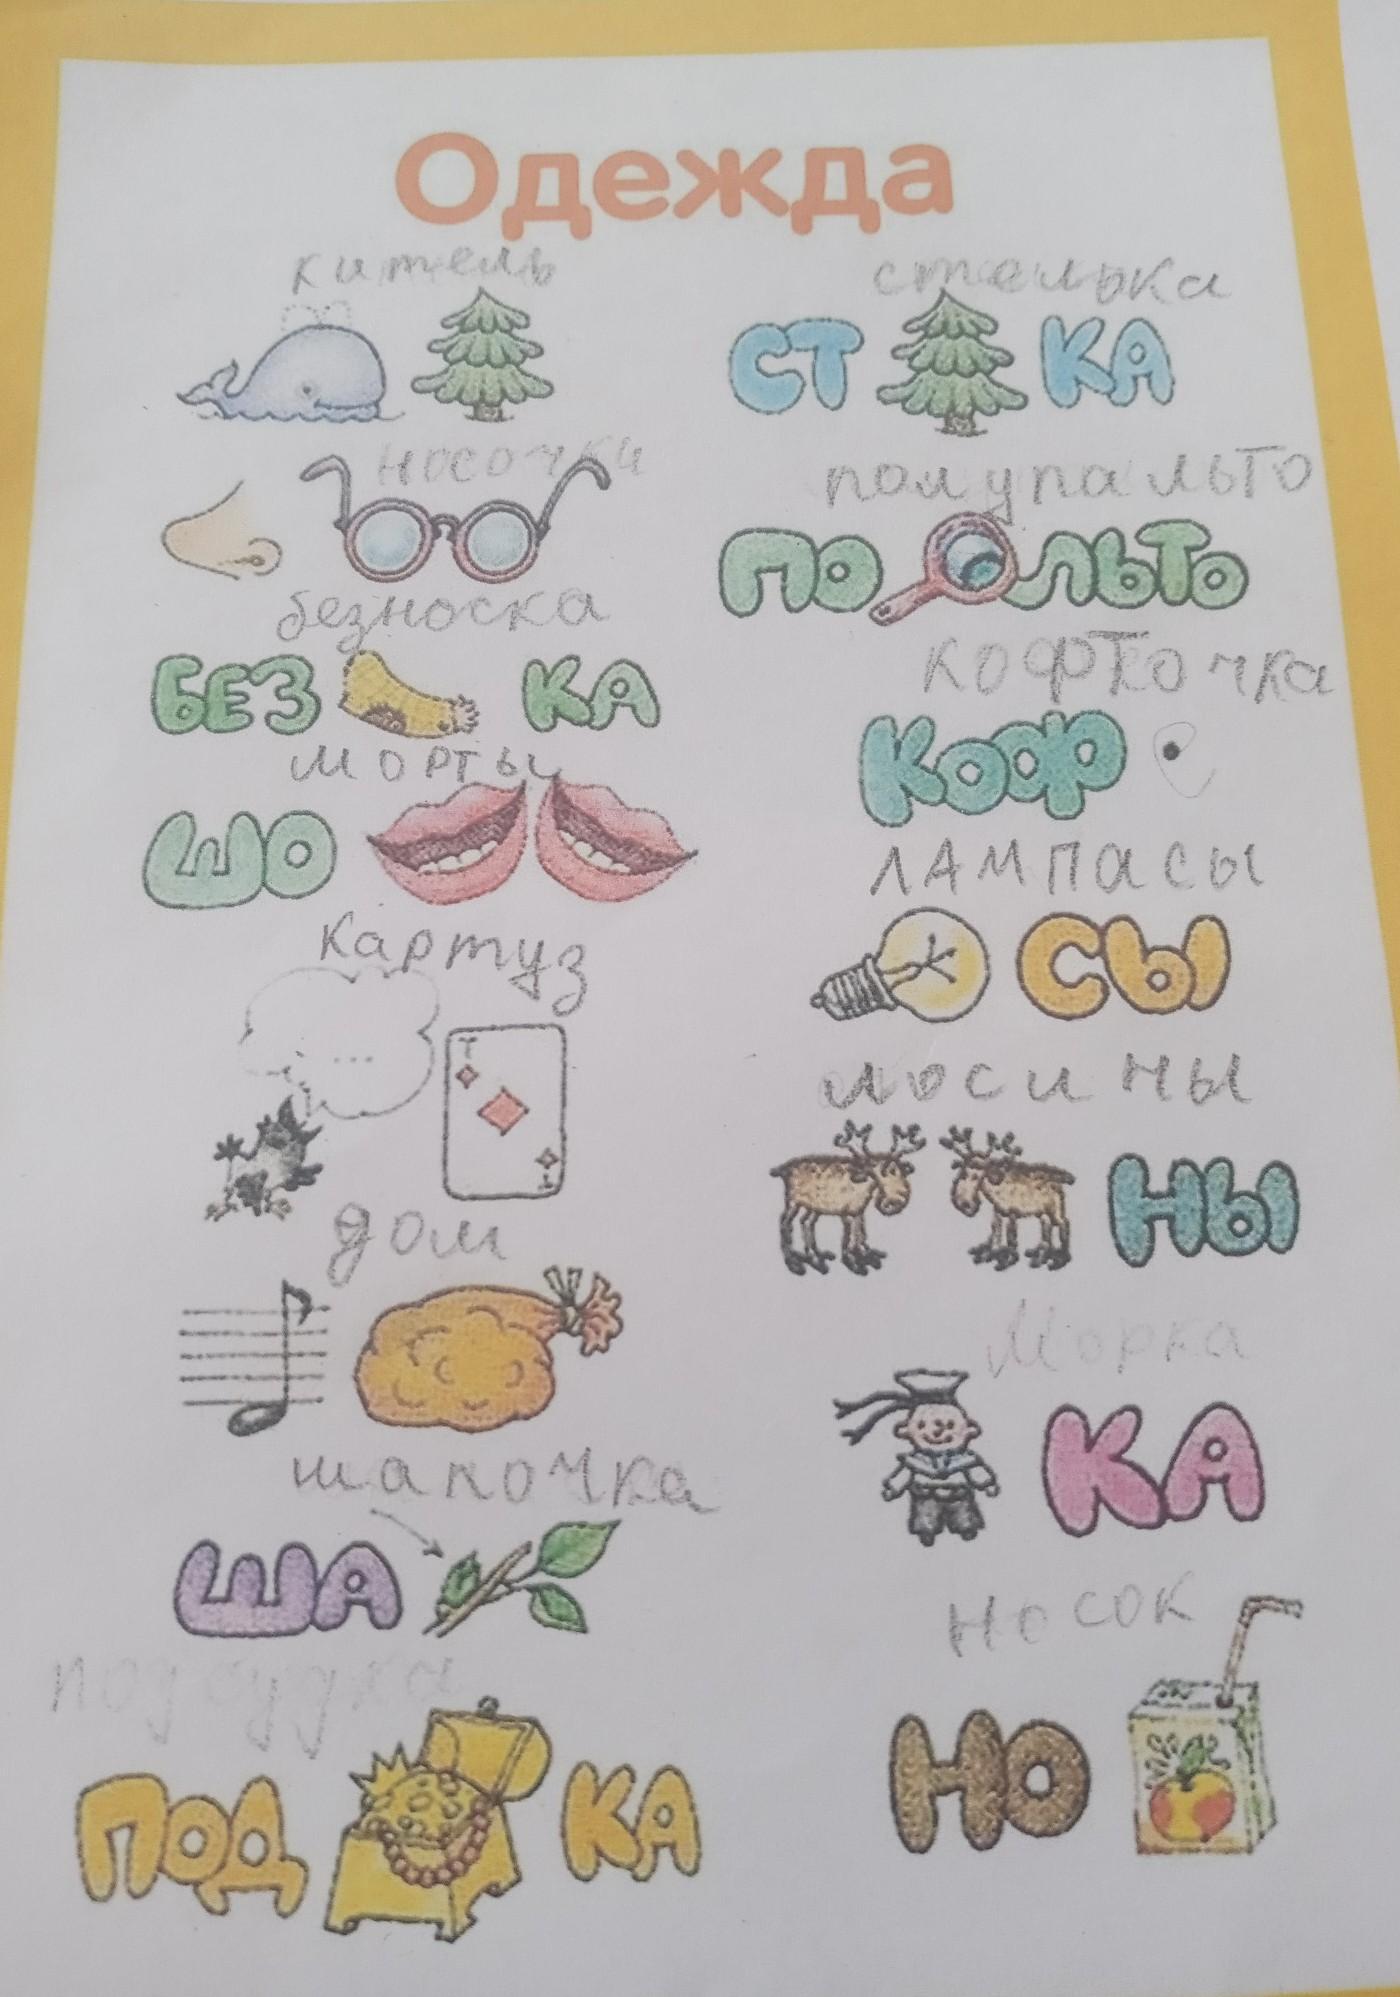 Одежда
китель
стелька
СТ КА
носочки
полупальто
ПО ЛЬТО
безноска
БЕЗ КА
кофточка
КОФ
морты
ШО
лампасы
СЫ
картуз
...
Т
Т
лосины
НЫ
дом
Морка
КА
шапочка
ША
носок
НО
ПОД КА